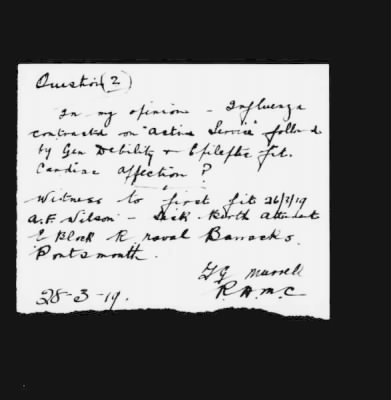 Question (2)
In my opinion - Influenza
contracted on "Active Service" followed
by Gen Debility & Epileptic fit.
Cardiac affection ?
Witness to first fit 26/2/19
A.F. Wilson - Sick Berth Attendant
E Block R. naval Barracks.
Portsmouth.
Murrell
R.A.M.C
28-3-19.